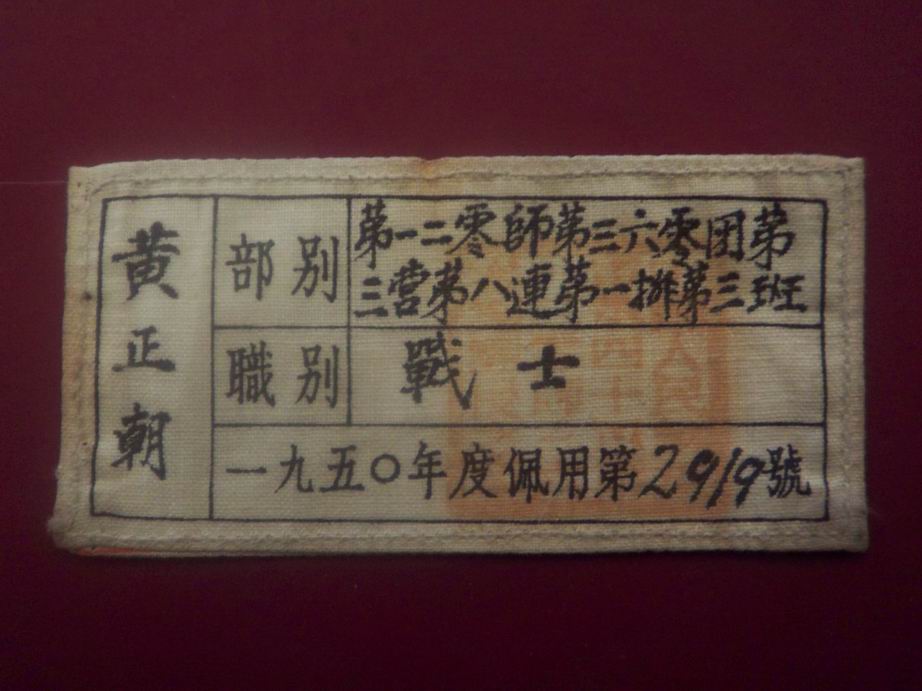 黄正朝
部别
第一二零師第三六零团第
三营第八連第一排第三班
職别
戰士
一九五〇年度佩用第2919號